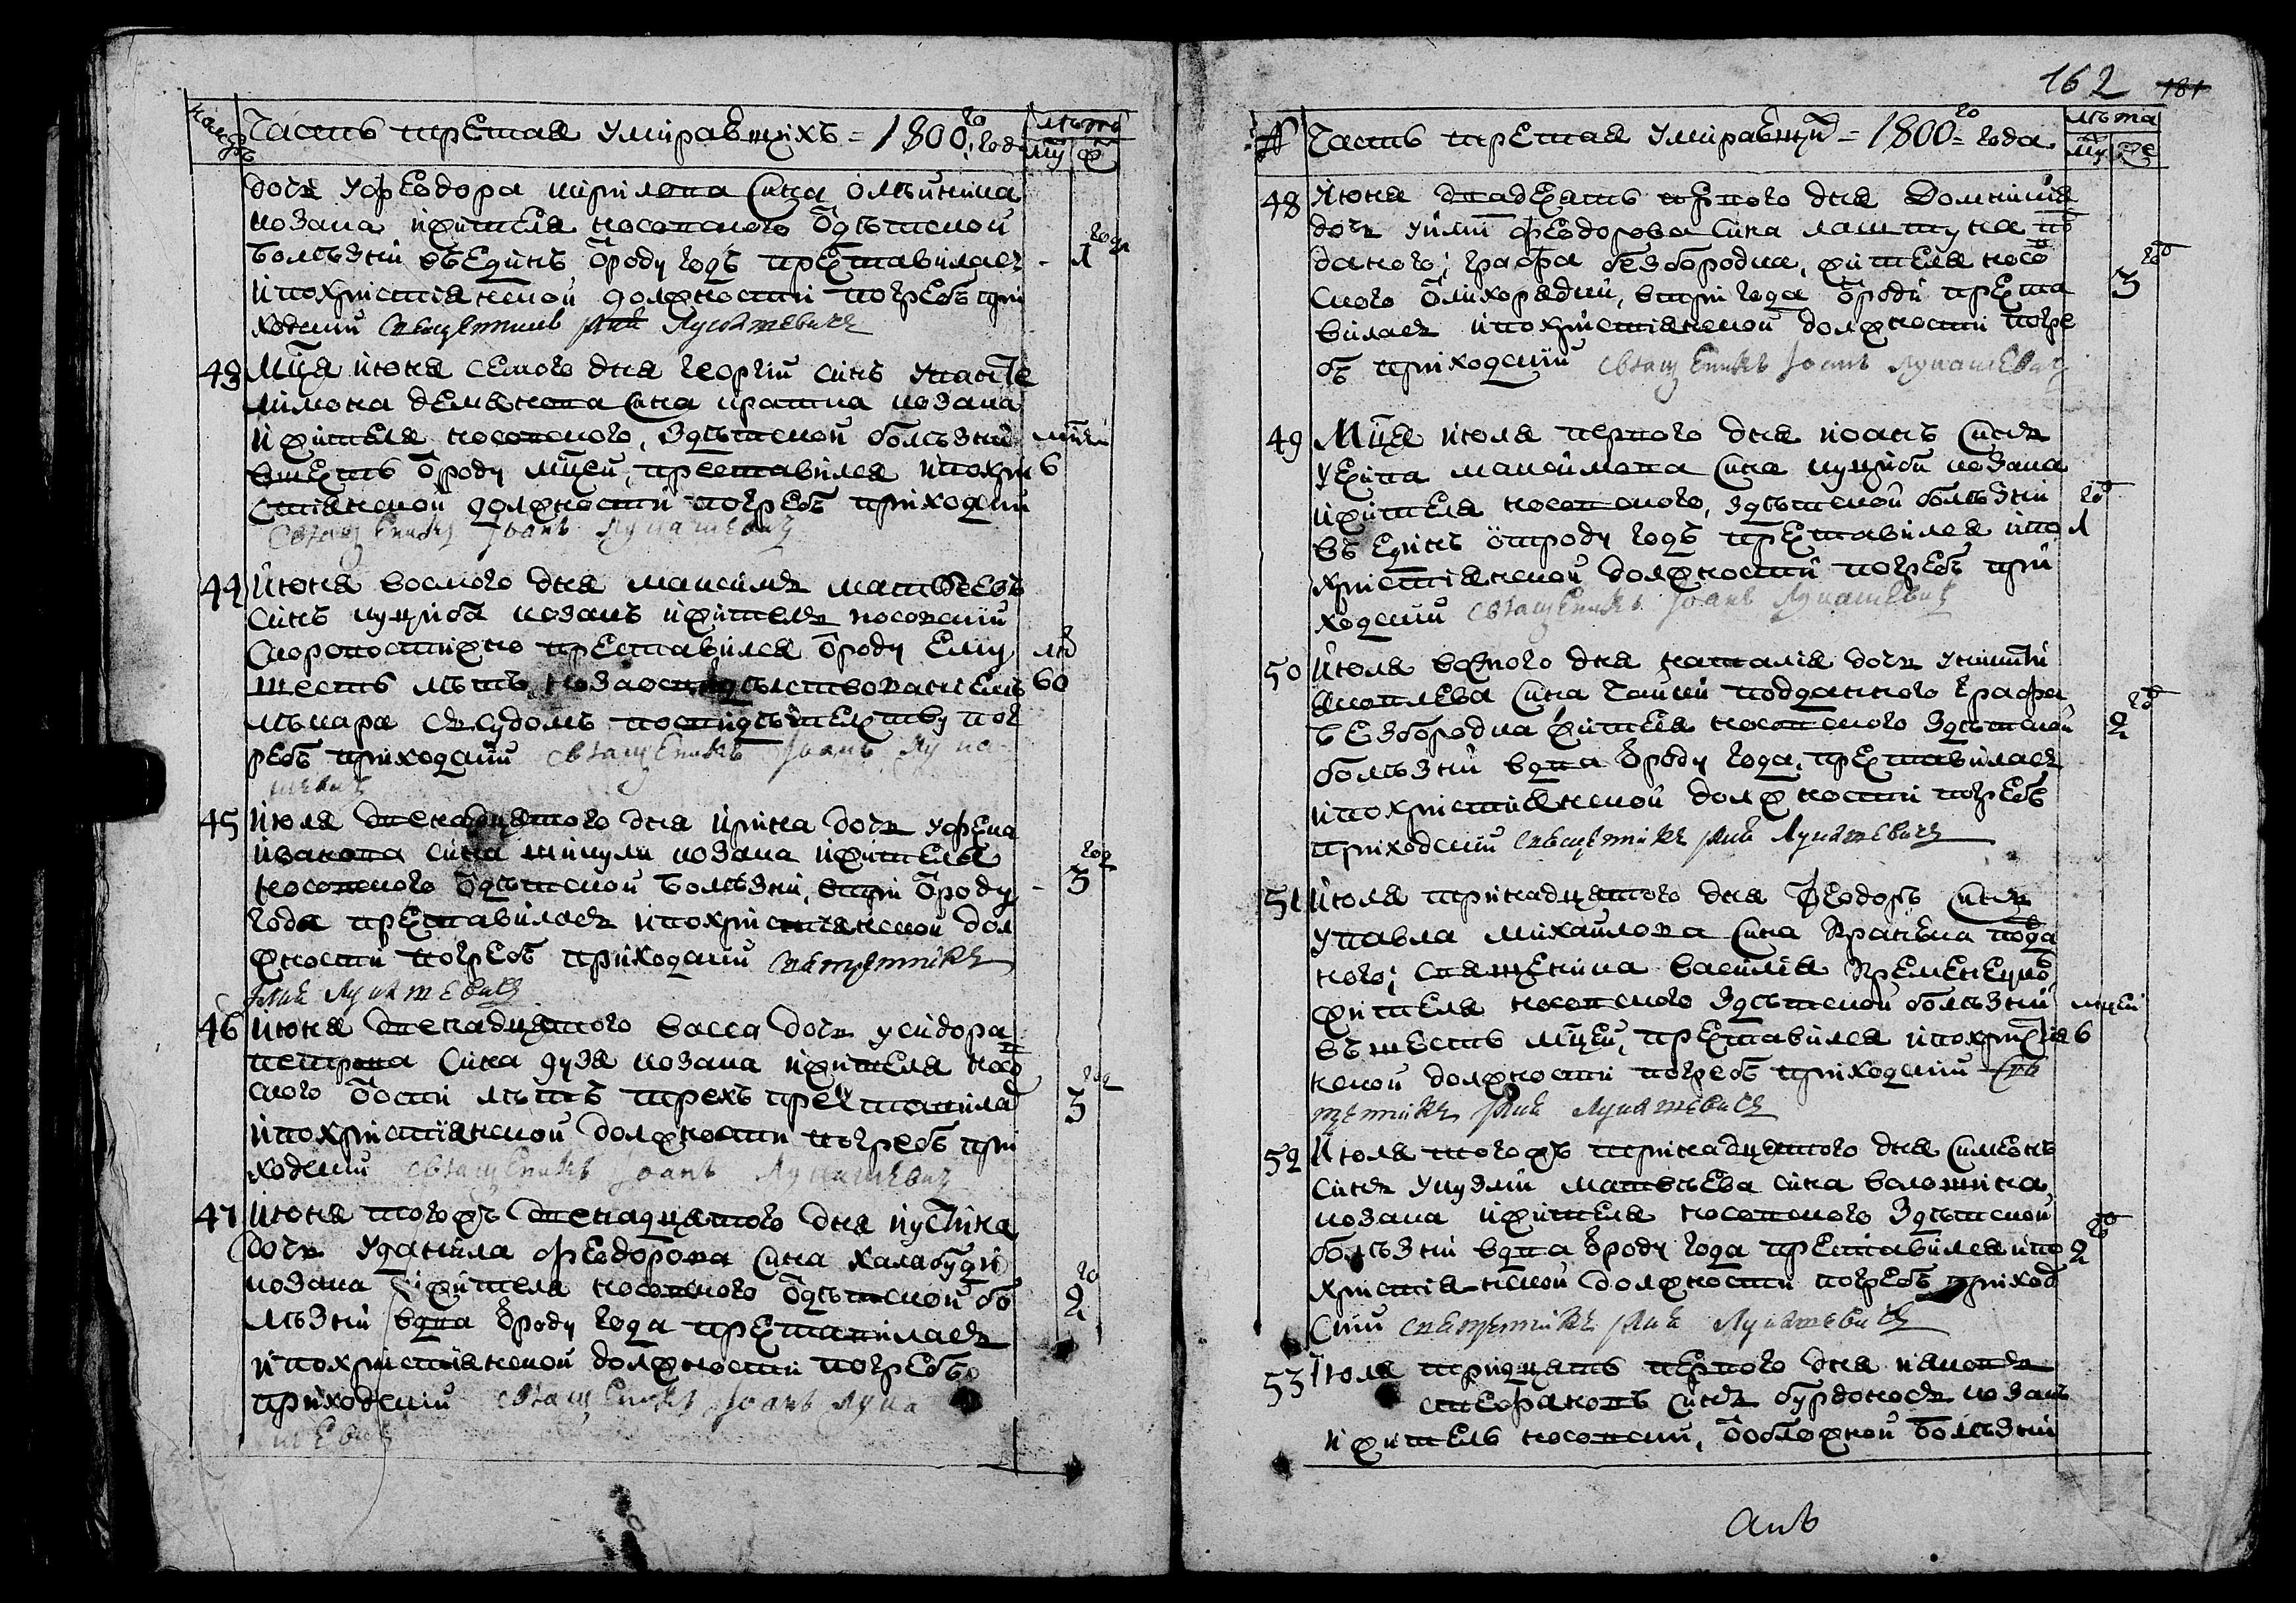 Часть третая умиравшихъ = 1800 го года
лѣта
му же
дочь у феодора кирилова сина олѣйника
козака и жителя носовского о здѣшней
болѣзни въ единъ о роду годъ преставилась 1 года
и по христіянской должности погребъ при
ходский священникъ Іоаннъ Лукашевичъ
43 Мца июня семого дня георгий синъ у пантеле
лимона демянова сина
козака
и жителя носовского, здѣшней болѣзни мцей
в шесть о роду мцей, преставился и по хри 6
стіянской должности погребъ приходский
священникъ Іоанъ Лукашевичъ
44 Июня восмого дня максимъ матвѣевъ
синъ куцриба козакъ и житель носовский
скоропостижно преставился о роду ему лѣ
шесть лѣтъ по засвидѣтелствованиемъ 60
лѣкара съ судомъ по свидѣтелству пог
ребъ приходский священикъ Іоанъ Лука
шевичъ
45 Июля двенадцятого дня ирина дочь у
иванова сина козака и жителя
носовского о здѣшней болѣзни, в три о роду 3 года
года преставилась и по христіянской дол
жности погребъ приходский священникъ
Іоаннъ Лукашевичъ
46 Июня двенадцятого васса дочь у сидора
петрова сина дуза козака и жителя носов
ского о оспи лѣтъ трехъ преставилас 3 года
и по христіянской должности погребъ при
ходский священикъ Іоанъ Лукашевичъ
47 Июня тогожъ двенадцятого дня иустина
дочь у данила феодорова сина халабуди
козака и жителя носовского о здѣшней бо
лѣзни в два о роду года преставилась 2 го
и по христіянской должности погребъ
приходский священикъ Іоанъ Лука
шевичъ
162 181
№ Часть третая умиравши = 1800 = го года
лѣта
му же
48 Июня двадцять первого дня Домникия
дочь у илии феодорова сина под
даного, графа безбородка, жителя носов
ского о лихорадки, в три года о роду преста 3 го
вилась и по християнской должности погре
бъ приходский священикъ Іоанъ Лукашевичъ
49 Мца июля первого дня иоанъ синъ
у максимова сина куцриби козака
и жителя носовского, здѣшней болѣзни го
въ единъ отроду годъ преставился и по 1
християнской должности погребъ при
ходский священикъ Іоанъ Лукашевичъ
50 Июля восмого дня наталия дочь у никити
яковлева сина подданного графа
безбородка жителя носовского здѣшней 2 го
болѣзни в два о роду года, преставилась
и по християнской должности погребъ
приходский священникъ Іоаннъ Лукашевичъ
51 Июля тринадцятого дня Феодоръ синъ
у павла михайлова сина подда
ного, священика василия
жителя носовского здѣшней болѣзни мцей
въ шесть мцей, преставился и по христия 6
нской должности погребъ приходский свя
щенникъ Іоаннъ Лукашевичъ
52 Июля тогожъ тринадцятого дня Симеонъ
синъ у кузми матвѣева сина волошина
козака и жителя носовского здѣшней
болѣзни в два о роду года преставился и по 2 го
християнской должности погребъ приход
ский священникъ Іоаннъ Лукашевичъ
53 Июля тридцять первого дня яковъ
стефановъ синъ бурдоносъ козакъ
и житель носовский, о обложной болѣзни